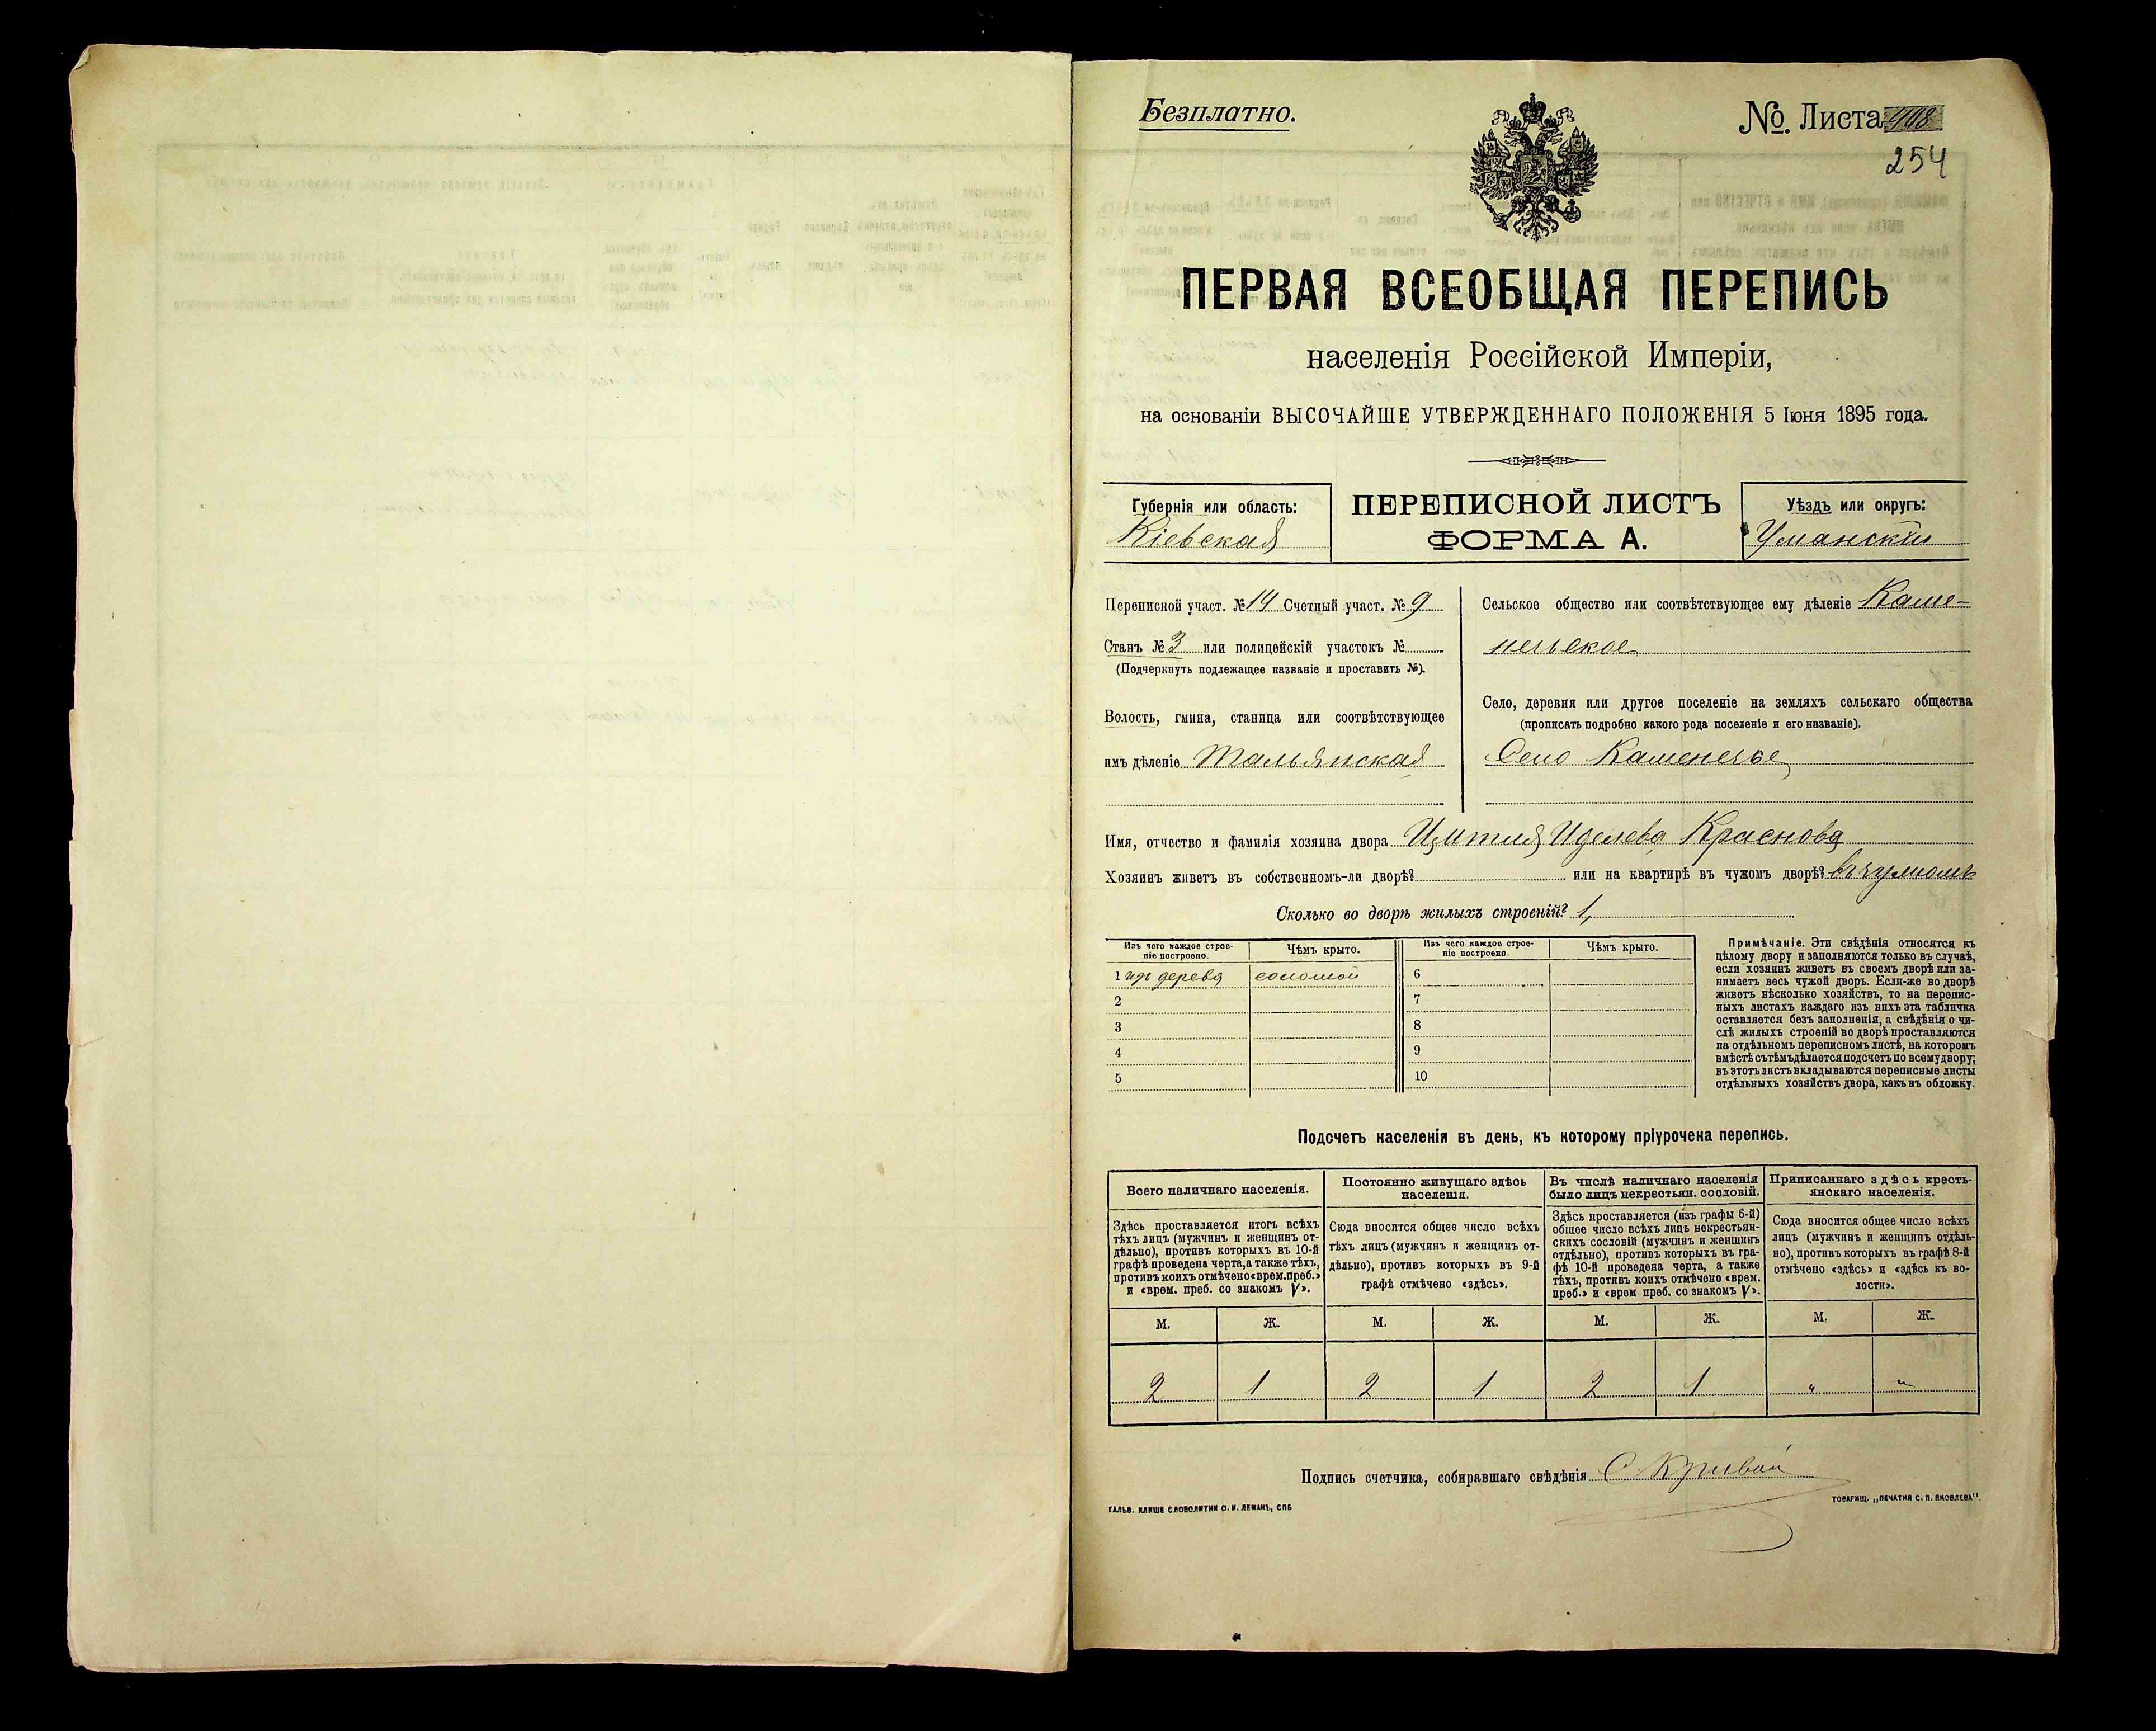 Безплатно.
№. Листа
254
ПЕРВАЯ ВСЕОБЩАЯ ПЕРЕПИСЬ
населенія Россійской Имперіи,
на основаніи ВЫСОЧАЙШЕ УТВЕРЖДЕННАГО ПОЛОЖЕНІЯ 5 Іюня 1895 года.
Губернія или область:
Кіевская
ПЕРЕПИСНОЙ ЛИСТЪ
ФОРМА А.
Уѣздъ или округъ:
Уманскій
Переписной участ. № 14 Счетный участ. № 9
Станъ № 3 или полицейскій участокъ №
(Подчеркнуть подлежащее названіе и проставить №).
Волость, гмина, станица или соотвѣтствующее
имъ дѣленіе Тальянская
Сельское общество или соотвѣтствующее ему дѣленіе Каме-
нечское
Село, деревня или другое поселеніе на земляхъ сельскаго общества
(прописать подробно какого рода поселеніе и его названіе).
Село Каменечье
Имя, отчество и фамилія хозяина двора Иделева Краснова
Хозяинъ живетъ въ собственномъ-ли дворѣ? или на квартирѣ въ чужомъ дворѣ? въ чужомъ
Сколько во дворѣ жилыхъ строеній? 1,
Изъ чего каждое строе-
ніе построено.
Чѣмъ крыто.
Изъ чего каждое строе-
ніе построено.
Чѣмъ крыто.
1 изъ дерева соломой 6
2 7
3 8
4 9
5 10
Примѣчаніе. Эти свѣдѣнія относятся къ
цѣлому двору и заполняются только въ случаѣ,
если хозяинъ живетъ въ своемъ дворѣ или за-
нимаетъ весь чужой дворъ. Если-же во дворѣ
живетъ нѣсколько хозяйствъ, то на перепис-
ныхъ листахъ каждаго изъ нихъ эта табличка
оставляется безъ заполненія, а свѣдѣнія о чи-
слѣ жилыхъ строеній во дворѣ проставляются
на отдѣльномъ переписномъ листѣ, на которомъ
вмѣстѣ съ тѣмъ дѣлается подсчетъ по всему двору;
въ этотъ листъ вкладываются переписные листы
отдѣльныхъ хозяйствъ двора, какъ въ обложку.
Подсчетъ населенія въ день, къ которому пріурочена перепись.
Всего наличнаго населенія.
Здѣсь проставляется итогъ всѣхъ
тѣхъ лицъ (мужчинъ и женщинъ от-
дѣльно), противъ которыхъ въ 10-й
графѣ проведена черта, а также тѣхъ,
противъ коихъ отмѣчено «врем. преб.»
и «врем. преб. со знакомъ V».
Постоянно живущаго здѣсь
населенія.
Сюда вносится общее число всѣхъ
тѣхъ лицъ (мужчинъ и женщинъ от-
дѣльно), противъ которыхъ въ 9-й
графѣ отмѣчено «здѣсь».
Въ числѣ наличнаго населенія
было лицъ некрестьян. сословій.
Здѣсь проставляется (изъ графы 6-й)
общее число всѣхъ лицъ некрестьян-
скихъ сословій (мужчинъ и женщинъ
отдѣльно), противъ которыхъ въ гра-
фѣ 10-й проведена черта, а также
тѣхъ, противъ коихъ отмѣчено «врем.
преб.» и «врем преб. со знакомъ V».
Приписаннаго здѣсь кресть-
янскаго населенія.
Сюда вносится общее число всѣхъ
лицъ (мужчинъ и женщинъ отдѣль-
но), противъ которыхъ въ графѣ 8-й
отмѣчено «здѣсь» и «здѣсь къ во-
лости».
М. Ж. М. Ж. М. Ж. М. Ж.
2 1 2 1 2 1 " "
Подпись счетчика, собиравшаго свѣдѣнія С. Кривой
ГАЛЬВ. КЛИШЕ СЛОВОЛИТНИ О. И. ЛЕМАНЪ, СПБ
ТОВАРИЩ. „ПЕЧАТНЯ С. П. ЯКОВЛЕВА".